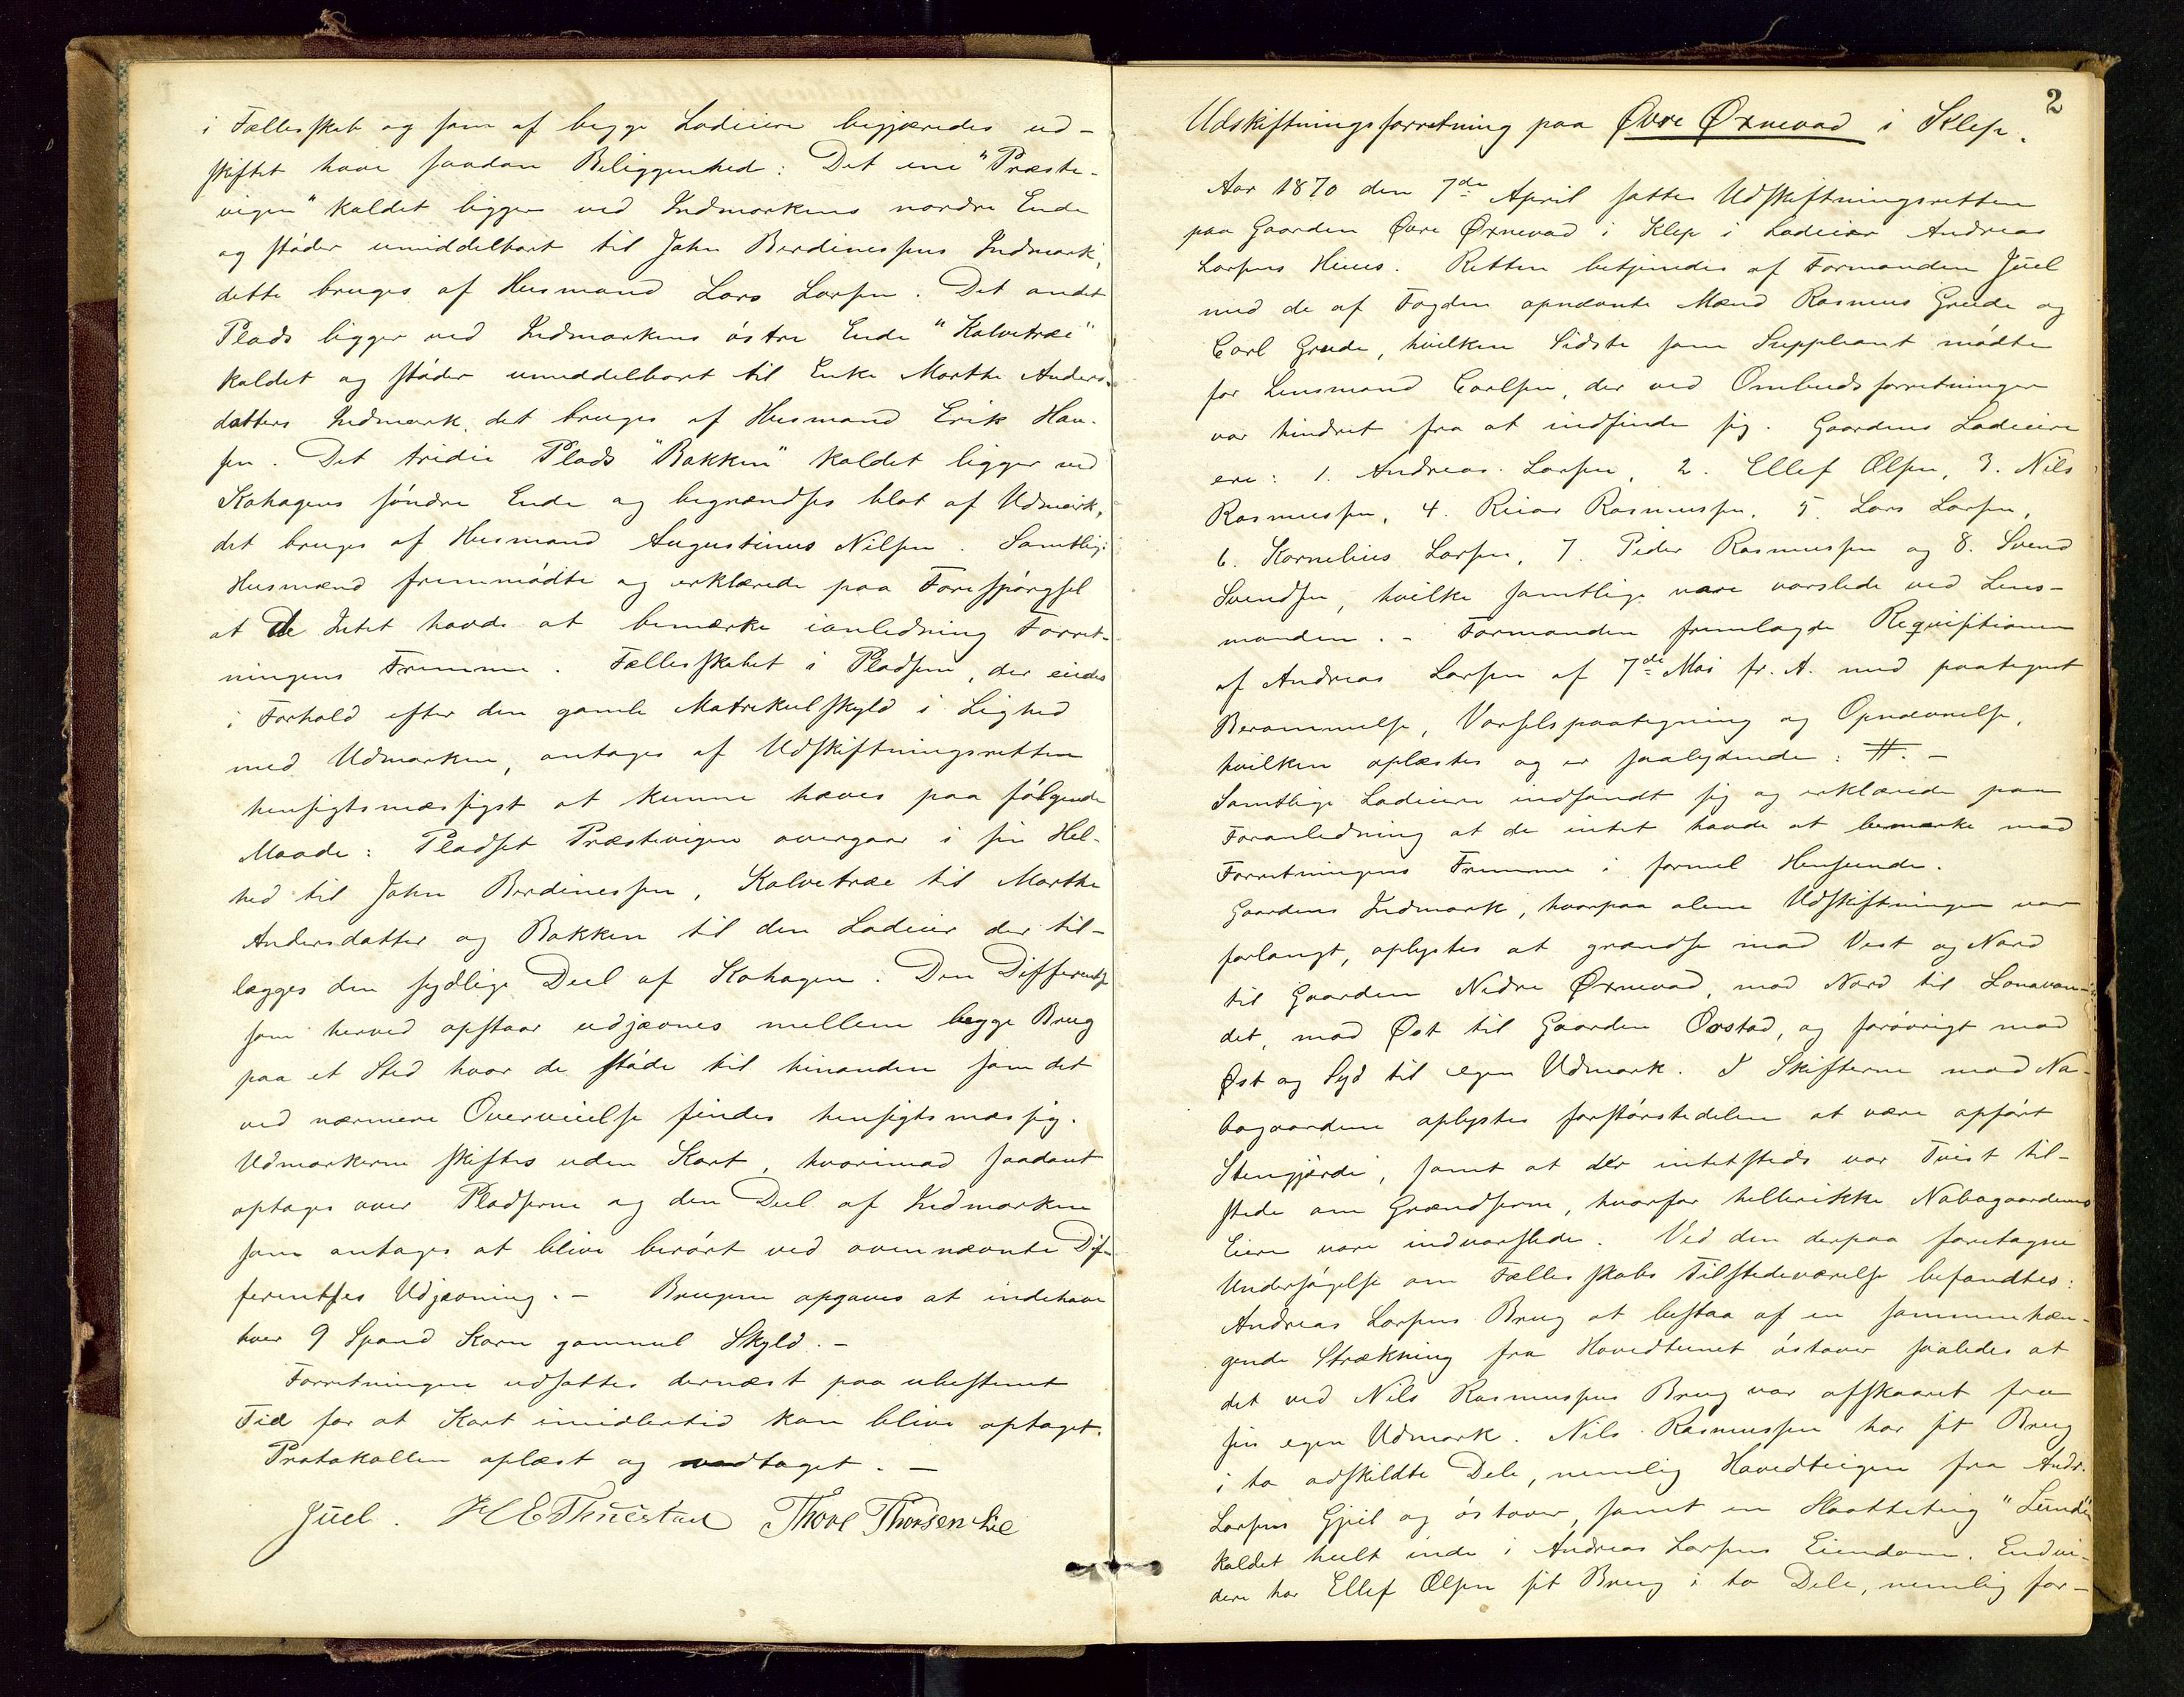 i Fællesskab og som af begge Lodeiere begjæredes ud-
skiftet have saadan Beliggenhed: Det ene "Præste-
vigen" kaldet ligger ved Indmarkens nordre Ende
og støder umiddelbart til John Berdinessens Indmark,
dette bruges af Husmand Lars Larsen. Det andet
Plads ligger ved Indmarkens østre Ende "Kalvetræe"
kaldet og støder umiddelbart til Enke Marthe Anders-
datters Indmark, det bruges af Husmand Erik Han-
sen. Det tredie Plads "Bakken" kaldet ligger ved
Kohagens søndre Ende og begrændses blot af Udmark,
det bruges af Husmand Augustinus Nilsen. Samtlige
Husmænd fremmødte og erklærede paa Forespørgsel
at de Intet havde at bemærke ianledning Forret-
ningens Fremme. Fællesskabet i Pladsene, der eiedes
i Forhold efter den gamle Matrikulskyld i Lighed
med Udmarken, antages af Udskiftningsretten
hensigtsmæssigst at kunne hæves paa følgende
Maade: Pladset Præstevigen overgaar i sin Hel-
hed til John Berdinessen, Kalvetræe til Marthe
Andersdatter og Bakken til den Lodeier der til-
lægges den sydlige Deel af Kohagen. Den Differents
som herved opstaar udjævnes mellem begge Brug
paa et Sted hvor de støde til hinanden som det
ved nærmere Overveielse findes hensigtsmæssig.
Udmarkerne skiftes uden Kart, hvorimod saadant
optages over Pladserne og den Deel af Indmarken
som antages at blive berørt ved ovennævnte Dif-
ferentses Udjævning. - Brugene opgaves at indehave
hver 9 Spand Korn gammel Skyld. -
Forretningen udsattes dernæst paa ubestemt
Tid for at Kart imidlertid kan blive optaget.
Protokollen oplæst og vedtaget. -
Juel. Thore Thorsen Lie
2
Udskiftningsforretning paa Øvre Øxnevad i Klep.
Aar 1870 den 7de April sattes Udskiftningsretten
paa Gaarden Øvre Øxnevad i Klep i Lodeier Andreas
Larsens Huus. Retten betjenedes af Formanden Juel
med de af Fogden opnævnte Mænd Rasmus Grude og
Carl Grude, hvilken Sidste som Suppleant mødte
for Lensmand Carlsen, der ved Ombudsforretninger
var hindret fra at indfinde sig. Gaardens Lodeiere
ere: 1. Andreas Larsen, 2. Ellef Olsen, 3. Nils
Rasmussen, 4. Reiar Rasmussen, 5. Lars Larsen,
6. Kornelius Larsen, 7. Peder Rasmussen og 8. Svend
Svendsen, hvilke samtlige vare varslede ved Lens-
manden. - Formanden fremlagde Reqvisitionen
af Andreas Larsen af 7de Mai f. A. med paategnet
Berammelse, Varselspaategning og Opnævnelse,
hvilken oplæstes og er saalydende: #. -
Samtlige Lodeiere indfandt sig og erklærede paa
Foranledning at de intet havde at bemærke mod
Forretningens Fremme i formel Henseende.
Gaardens Indmark, hvorpaa alene Udskiftningen var
forlangt, oplystes at grændse mod Vest og Nord
til Gaarden Nedre Øxnevad, mod Nord til Lonavan-
det, mod Øst til Gaarden Orstad, og forøvrigt mod
Øst og Syd til egen Udmark. I Skifterne mod Na-
bogaardene oplystes forstørstedelen at være opført
Stengjærde, samt at der intetsteds var Tvist til-
stede om Grændserne, hvorfor hellerikke Nabogaardenes
Eiere vare indvarslede. Ved den derpaa foretagne
Undersøgelse om Fællesskabs Tilstedeværelse befandtes:
Andreas Larsens Brug at bestaa af en sammenhæn-
gende Strækning fra Hovedtunet østover saaledes at
det ved Nils Rasmussens Brug var afskaaret fra
sin egen Udmark. Nils Rasmussen har sit Brug
i to adskildte Dele, nemlig Hovedteigen fra Andr.
Larsens Gjeil og østover, samt en Slaatteteig "Lunden"
kaldet heelt inde i Andreas Larsens Eiendom. Endvi-
dere har Ellef Olsen sit Brug i to Dele, nemlig for-